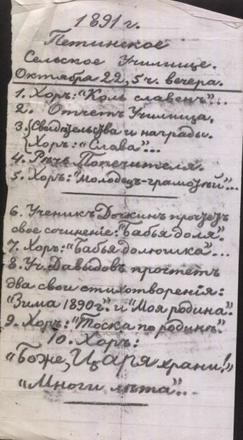 1891 г.
Петинское
Сельское Училище.
Октября 22, 5 ч. вечера.
1. Хоръ: "Коль славенъ"...
2. Отчетъ Училища,
3. Свидѣтельства и награды.
Хоръ: "Слава"...
4. Рѣчь Попечителя.
5. Хоръ: "Молодецъ-грамотѣй"...
6. Ученикъ Дочкинъ прочтетъ
свое сочиненіе: "Бабья доля".
7. Хоръ: "Бабья долюшка"...
8. Уч. Давидовъ прочтетъ
два свои стихотворенія:
"Зима 1890 г." и "Моя родина".
9. Хоръ: "Тоска по родинѣ"
10. Хоръ:
"Боже, Царя храни!"
"Многи лѣта"...